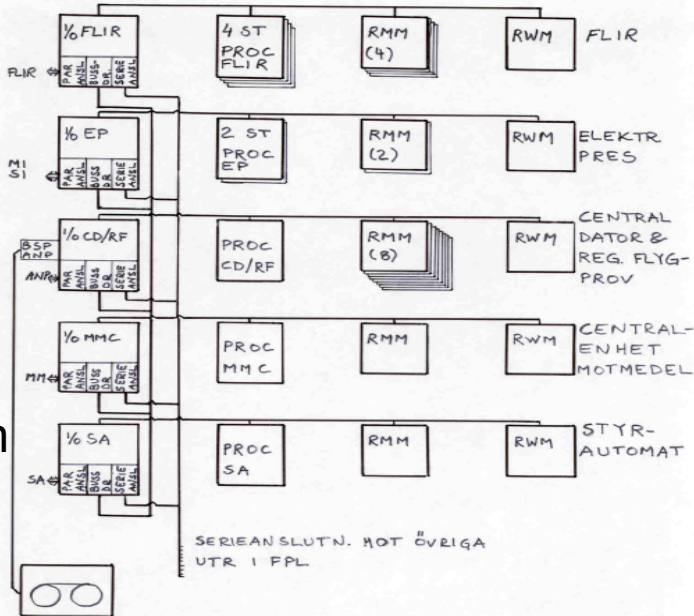 I/O FLIR
PAR ANSL
BUSS-DR.
SERIE ANSL
FLIR
4 ST
PROC
FLIR
RMM
(4)
RWM
FLIR
I/O EP
PAR ANSL
BUSS DR
SERIE ANSL
MI
SI
2 ST
PROC
EP
RMM
(2)
RWM
ELEKTR
PRES
I/O CD/RF
BSP
ANP
PAR ANSL
BUSS DR
SERIE ANSL
ANP
PROC
CD/RF
RMM
(8)
RWM
CENTRAL
DATOR &
REG. FLYG-
PROV
I/O MMC
PAR ANSL
BUSS DR
SERIE ANSL
MM
PROC
MMC
RMM
RWM
CENTRAL-
ENHET
MOTMEDEL
I/O SA
PAR ANSL
BUSS DR
SERIE ANSL
SA
PROC
SA
RMM
RWM
STYR-
AUTOMAT
SERIEANSLUTN. MOT ÖVRIGA
UTR I FPL